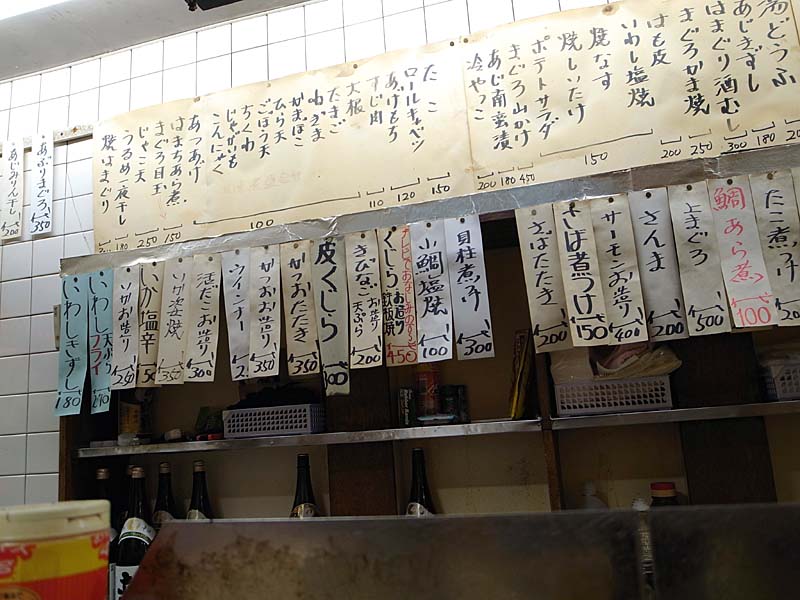 湯どうふ
あじきずし 200
はまぐり酒むし 180
まぐろかま焼 300
はも皮 250
いわし塩焼 200
焼なす
焼しいたけ
ポテトサラダ 150
まぐろ山かけ 450
あじ南蛮漬 180
冷やっこ 200
たこ 150
ロールキャベツ
あげもち 120
すじ肉 110
大根
たまご
ねぎま
かまぼこ
ひら天
ごぼう天
ちくわ
じゃがいも
こんにゃく
あつあげ 100
はまちあら煮 150
まぐろ目玉 250
じゃこ天
うるめ一夜干し 180
焼はまぐり
あぶりまぐろ 350
あじみりん干し 200
たこ煮つけ
鯛あら煮 100
上まぐろ 500
さんま 200
サーモンお造り 400
さば煮つけ 150
きばたたき 200
貝柱煮つけ 300
小鯛塩焼 100
くじら お造り 鉄板焼 450
きびなご お造り 天ぷら 200
皮くじら
かつおたたき 350
かつおお造り 350
ウインナー
活だこお造り 300
いか姿焼 350
いか塩辛
いかお造り 250
いわし 天ぷら フライ
いわしきずし 180